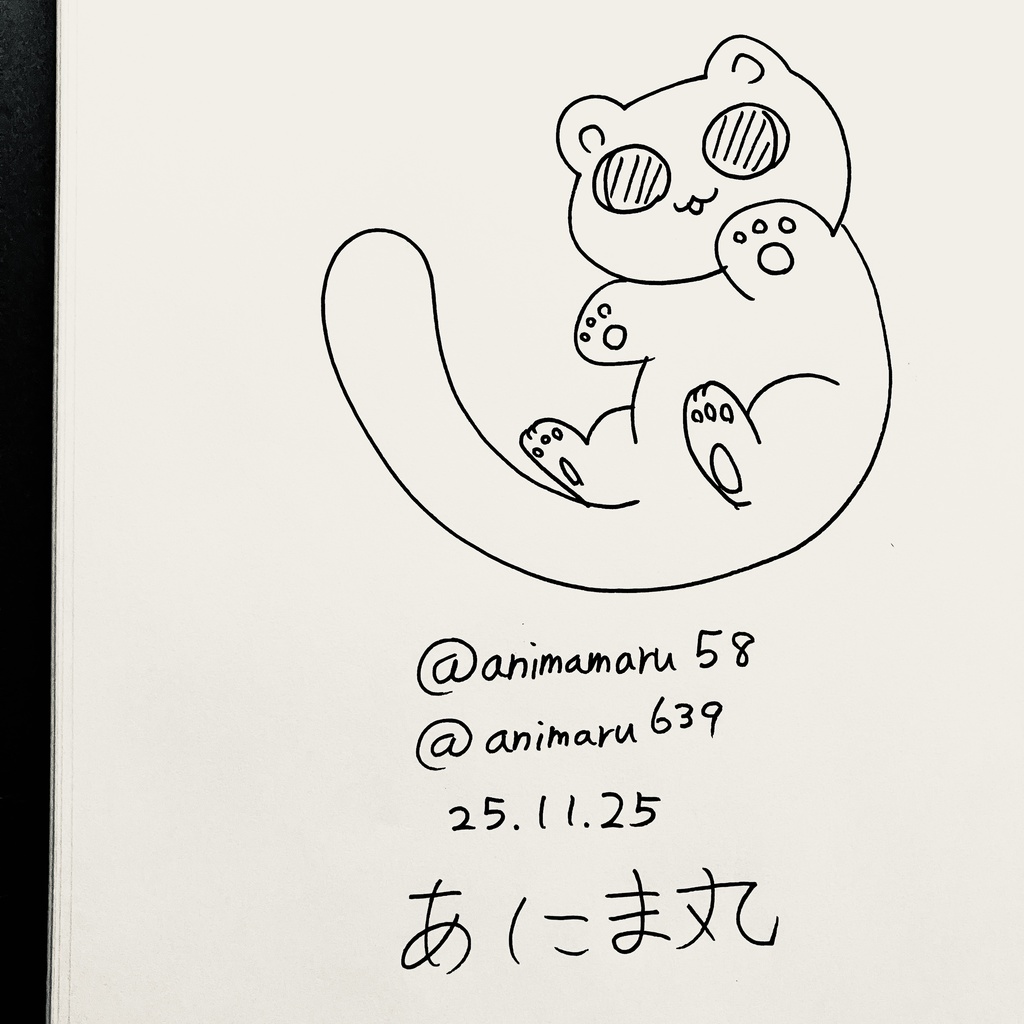 @animamaru58
@animaru639
25.11.25
あにま丸